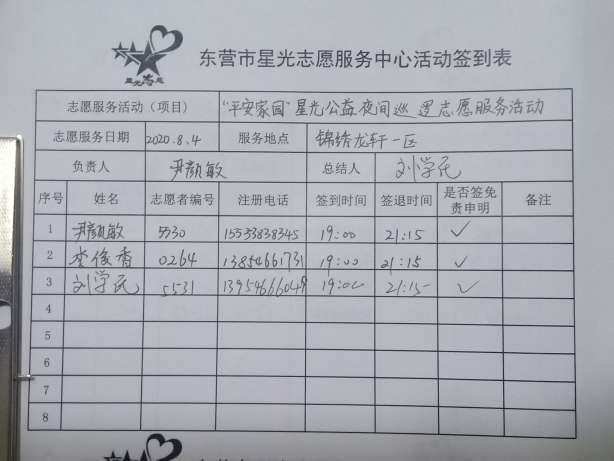 东营市星光志愿服务中心活动签到表
志愿服务活动（项目） “平安家园”星光公益夜间巡逻志愿服务活动
志愿服务日期 2020.8.4 服务地点 锦绣龙轩一区
负责人 尹颜敏 总结人 刘学民
序号 姓名 志愿者编号 注册电话 签到时间 签退时间 是否签免责申明 备注
1 尹颜敏 5530 15533838345 19:00 21:15 ✓
2 李俊香 0264 13854661731 19:00 21:15 ✓
3 刘学民 5531 13954666049 19:00 21:15 ✓
4
5
6
7
8